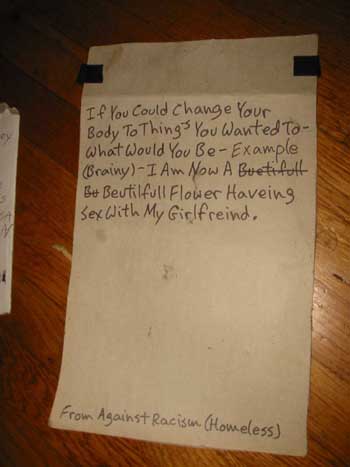 If You Could Change Your
Body To Things You Wanted To-
What Would You Be - Example
(Brainy) - I Am Now A Buetifull
Bu Beutilfull Flower Haveing
Sex With My Girlfreind.
From Against Racism (Homeless)